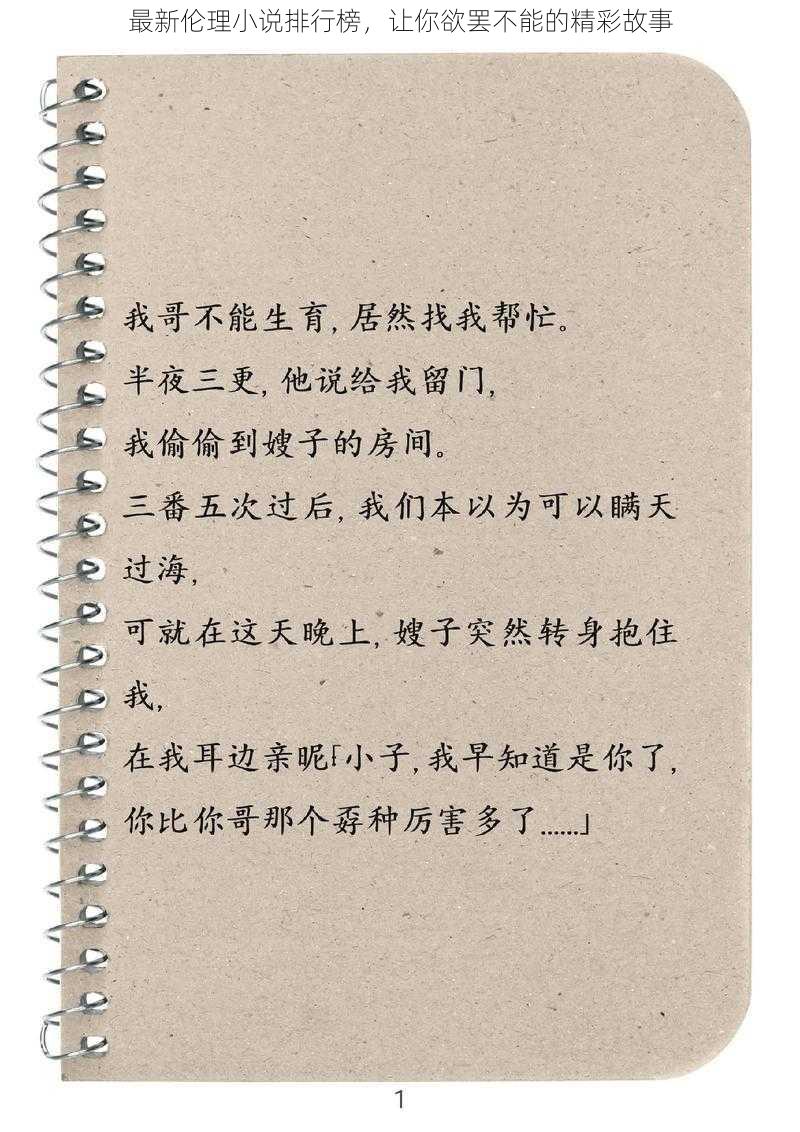 最新伦理小说排行榜，让你欲罢不能的精彩故事
我哥不能生育,居然找我帮忙。
半夜三更,他说给我留门,
我偷偷到嫂子的房间。
三番五次过后,我们本以为可以瞒天
过海,
可就在这天晚上,嫂子突然转身抱住
我,
在我耳边亲昵「小子,我早知道是你了,
你比你哥那个孬种厉害多了......」
1